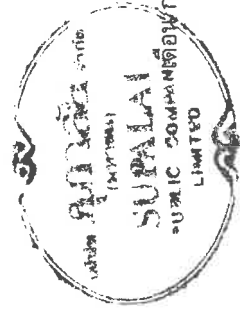 บริษัท ศุภาลัย จำกัด
(มหาชน)
SUPALAI
PUBLIC COMPANY
LIMITED